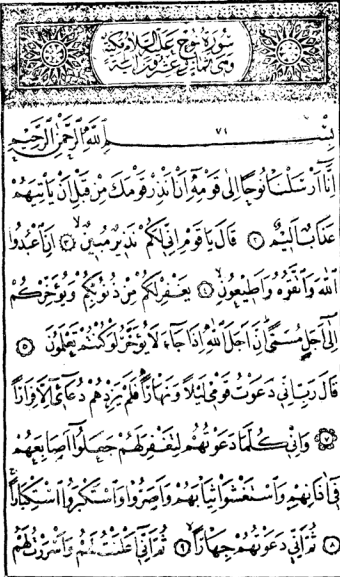 سورة نوح عليه السلام مكية
وهي ثمان وعشرون اية
٧١
بسم الله الرحمن الرحيم
اِنَّٓا اَرْسَلْنَا نُوحًا اِلٰى قَوْمِهٖٓ اَنْ اَنْذِرْ قَوْمَكَ مِنْ قَبْلِ اَنْ يَأْتِيَهُمْ
عَذَابٌ اَلِيمٌ ٢ قَالَ يَا قَوْمِ اِنِّى لَكُمْ نَذِيرٌ مُبِينٌ ٣ اَنِ اعْبُدُوا
اللّٰهَ وَاتَّقُوهُ وَاَطِيعُونِ ٤ يَغْفِرْ لَكُمْ مِنْ ذُنُوبِكُمْ وَيُؤَخِّرْكُمْ
اِلٰٓى اَجَلٍ مُسَمًّى اِنَّ اَجَلَ اللّٰهِ اِذَا جَٓاءَ لَا يُؤَخَّرُ لَوْ كُنْتُمْ تَعْلَمُونَ ٥
قَالَ رَبِّ اِنِّى دَعَوْتُ قَوْمِى لَيْلًا وَنَهَارًا فَلَمْ يَزِدْهُمْ دُعَٓائِٓى اِلَّا فِرَارًا
٧ وَاِنِّى كُلَّمَا دَعَوْتُهُمْ لِتَغْفِرَ لَهُمْ جَعَلُٓوا اَصَابِعَهُمْ
فِٓى اٰذَانِهِمْ وَاسْتَغْشَوْا ثِيَابَهُمْ وَاَصَرُّوا وَاسْتَكْبَرُوا اسْتِكْبَارًا
٨ ثُمَّ اِنِّى دَعَوْتُهُمْ جِهَارًا ٩ ثُمَّ اِنِّٓى اَعْلَنْتُ لَهُمْ وَاَسْرَرْتُ لَهُمْ